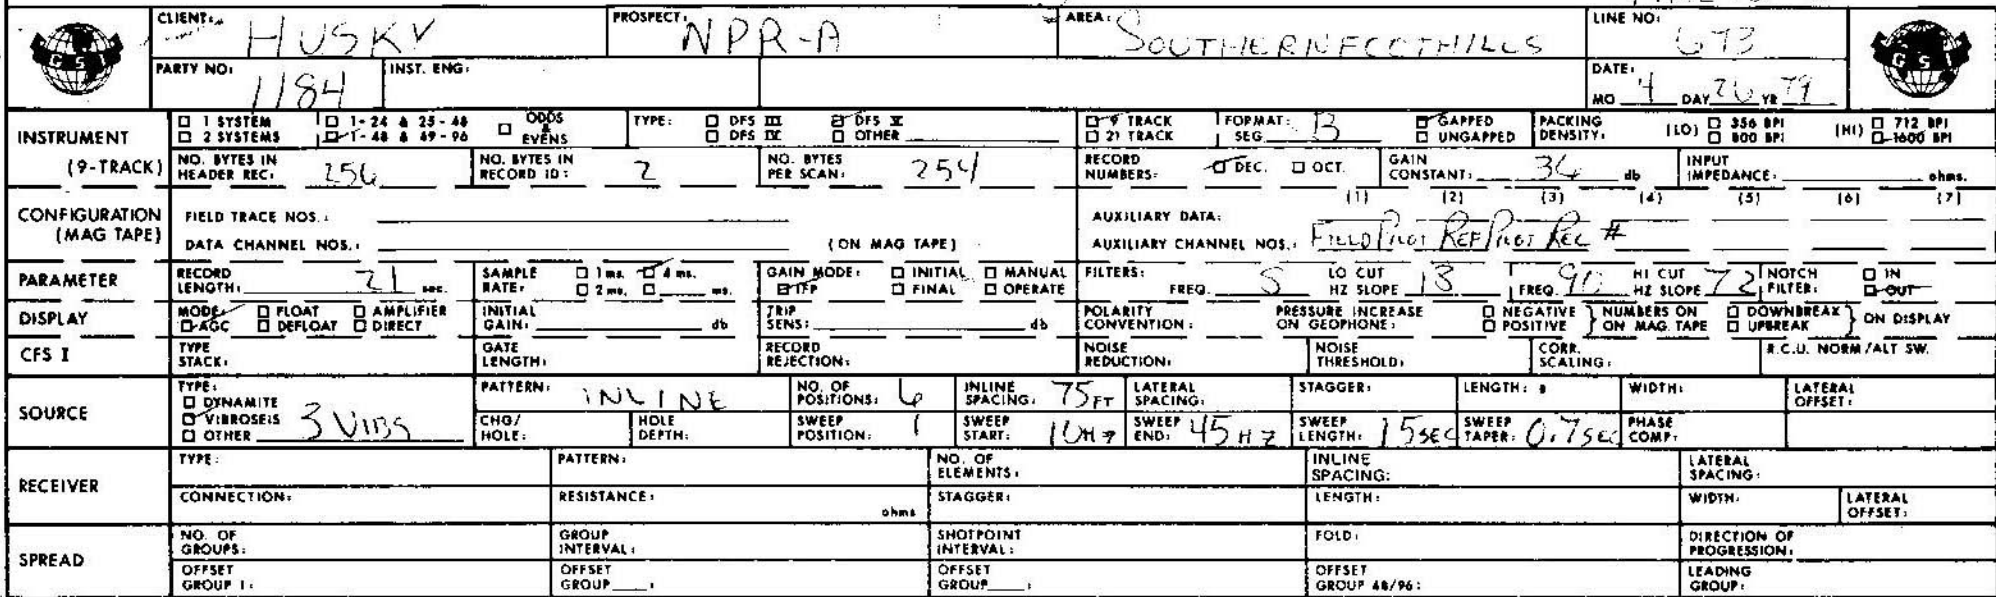 CLIENT: HUSKY PROSPECT: NPR-A AREA: SOUTHERN FOOTHILLS LINE NO: 673
GSI
PARTY NO: 1184 INST. ENG: DATE: MO 4 DAY 26 YR 79
GSI
INSTRUMENT (9-TRACK)
□ 1 SYSTEM □ 1-24 & 25-48 □ ODDS & EVENS TYPE: □ DFS III ☑ DFS V ☑ 9 TRACK FORMAT: SEG B ☑ GAPPED PACKING DENSITY: (LO) □ 356 BPI (HI) □ 712 BPI
□ 2 SYSTEMS ☑ 1-48 & 49-96 □ DFS IV □ OTHER □ 21 TRACK □ UNGAPPED □ 800 BPI ☑ 1600 BPI
NO. BYTES IN HEADER REC: 256 NO. BYTES IN RECORD ID: 2 NO. BYTES PER SCAN: 254 RECORD NUMBERS: ☑ DEC. □ OCT. GAIN CONSTANT: 36 db INPUT IMPEDANCE: ohms.
CONFIGURATION (MAG TAPE)
(1) (2) (3) (4) (5) (6) (7)
FIELD TRACE NOS.: AUXILIARY DATA:
DATA CHANNEL NOS.: (ON MAG TAPE) AUXILIARY CHANNEL NOS.: FIELD PILOT REF PILOT REC #
PARAMETER RECORD LENGTH: 21 sec. SAMPLE RATE: □ 1 ms. ☑ 4 ms. □ 2 ms. □ ms. GAIN MODE: □ INITIAL □ MANUAL ☑ IFP □ FINAL □ OPERATE FILTERS: FREQ. 5 LO CUT HZ SLOPE 18 FREQ. 90 HI CUT HZ SLOPE 72 NOTCH FILTER: □ IN ☑ OUT
DISPLAY MODE: □ FLOAT □ AMPLIFIER ☑ AGC □ DEFLOAT □ DIRECT INITIAL GAIN: db TRIP SENS: db POLARITY CONVENTION: PRESSURE INCREASE ON GEOPHONE: □ NEGATIVE □ POSITIVE } NUMBERS ON ON MAG. TAPE □ DOWNBREAK □ UPBREAK } ON DISPLAY
CFS I TYPE STACK: GATE LENGTH: RECORD REJECTION: NOISE REDUCTION: NOISE THRESHOLD: CORR. SCALING: R.C.U. NORM/ALT SW.
SOURCE
TYPE: □ DYNAMITE ☑ VIBROSEIS □ OTHER 3 VIBS
PATTERN: INLINE NO. OF POSITIONS: 6 INLINE SPACING: 75 FT LATERAL SPACING: STAGGER: LENGTH: WIDTH: LATERAL OFFSET:
CHG/HOLE: HOLE DEPTH: SWEEP POSITION: 1 SWEEP START: 10 HZ SWEEP END: 45 HZ SWEEP LENGTH: 15 SEC SWEEP TAPER: 0.7 SEC PHASE COMP:
RECEIVER
TYPE: PATTERN: NO. OF ELEMENTS: INLINE SPACING: LATERAL SPACING:
CONNECTION: RESISTANCE: ohms STAGGER: LENGTH: WIDTH: LATERAL OFFSET:
SPREAD
NO. OF GROUPS: GROUP INTERVAL: SHOTPOINT INTERVAL: FOLD: DIRECTION OF PROGRESSION:
OFFSET GROUP 1: OFFSET GROUP : OFFSET GROUP : OFFSET GROUP 48/96: LEADING GROUP: